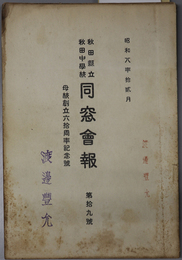 昭和八年拾貳月
秋田縣立
秋田中學校
同窓會報
第拾九號
母校創立六拾周年記念號
渡邊豐允